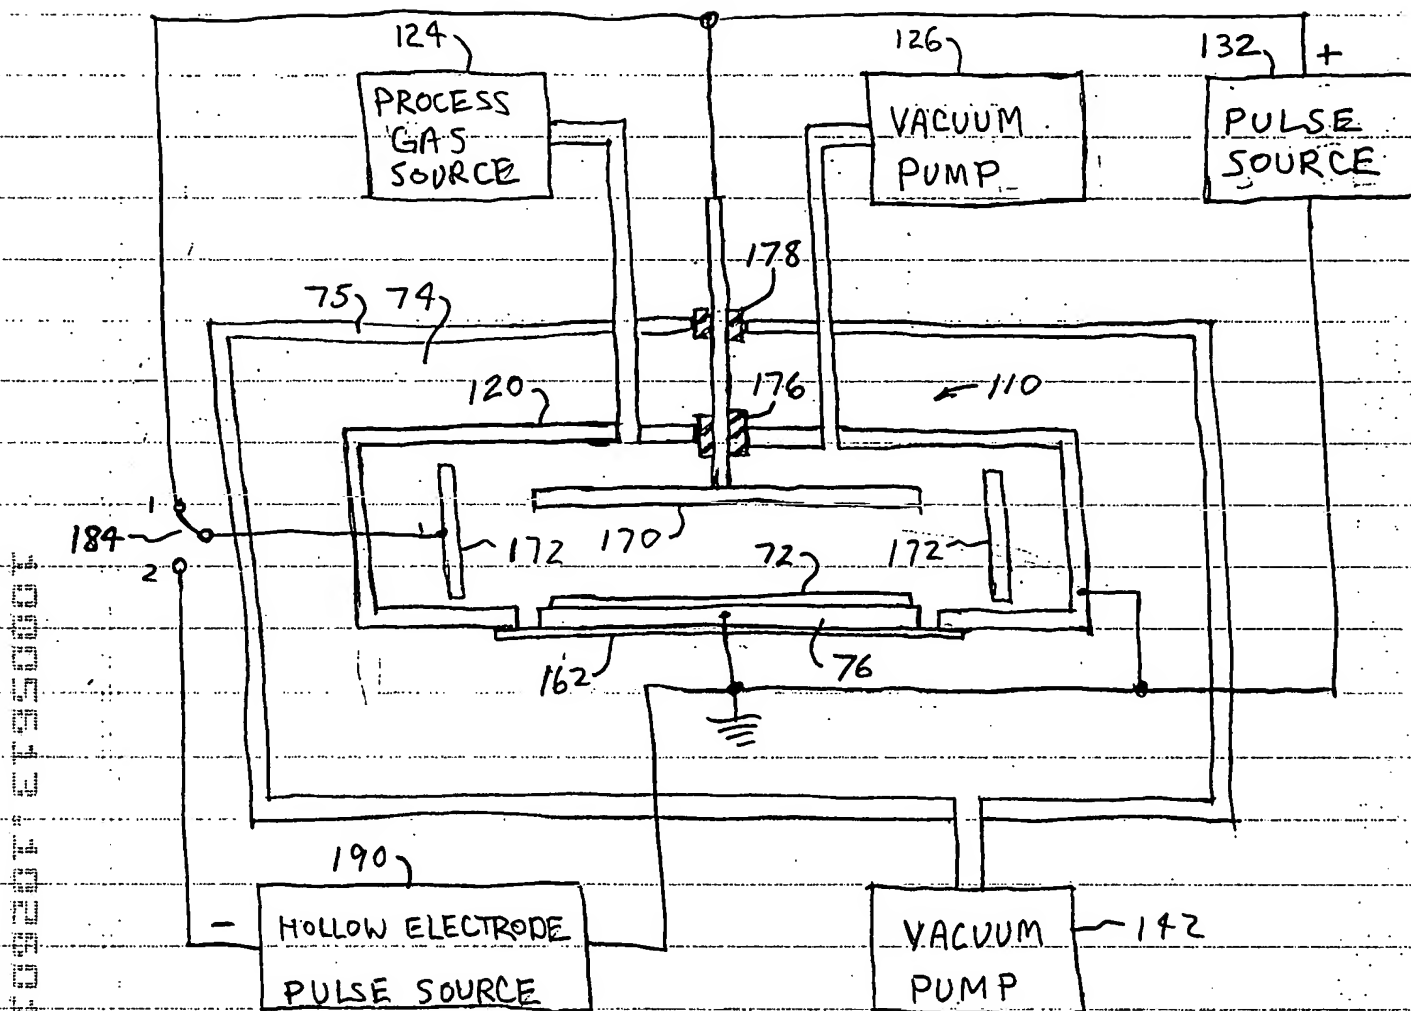 124
126
132
+
PROCESS
GAS
SOURCE
VACUUM
PUMP
PULSE
SOURCE
178
75
74
120
176
110
1
184
2
172
170
72
172
162
76
190
-
HOLLOW ELECTRODE
PULSE SOURCE
VACUUM
PUMP
142